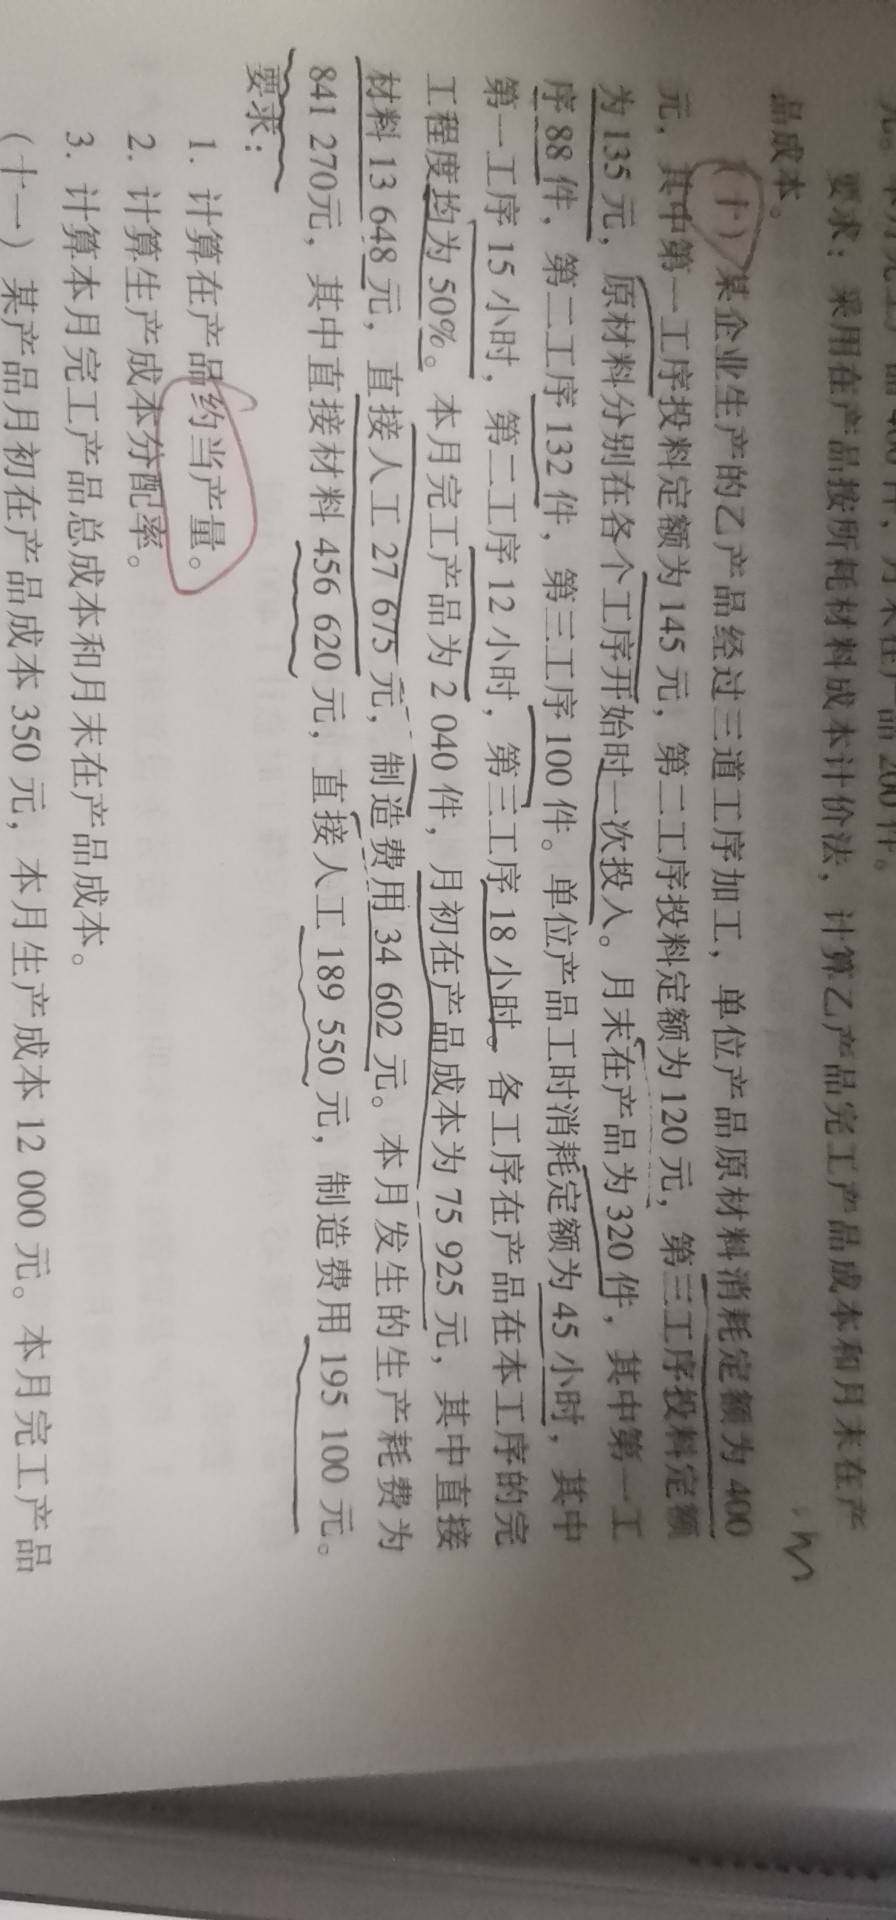 品 40 件，月末在产品 200 件。
要求：采用在产品按所耗材料成本计价法，计算乙产品完工产品成本和月末在产
品成本。
（十）某企业生产的乙产品经过三道工序加工，单位产品原材料消耗定额为 400
元，其中第一工序投料定额为 145 元，第二工序投料定额为 120 元，第三工序投料定额
为 135 元，原材料分别在各个工序开始时一次投入。月末在产品为 320 件，其中第一工
序 88 件，第二工序 132 件，第三工序 100 件。单位产品工时消耗定额为 45 小时，其中
第一工序 15 小时，第二工序 12 小时，第三工序 18 小时。各工序在产品在本工序的完
工程度均为 50%。本月完工产品为 2 040 件，月初在产品成本为 75 925 元，其中直接
材料 13 648 元，直接人工 27 675 元，制造费用 34 602 元。本月发生的生产耗费为
841 270元，其中直接材料 456 620 元，直接人工 189 550 元，制造费用 195 100 元。
要求：
1. 计算在产品约当产量。
2. 计算生产成本分配率。
3. 计算本月完工产品总成本和月末在产品成本。
（十一）某产品月初在产品成本 350 元，本月生产成本 12 000 元。本月完工产品